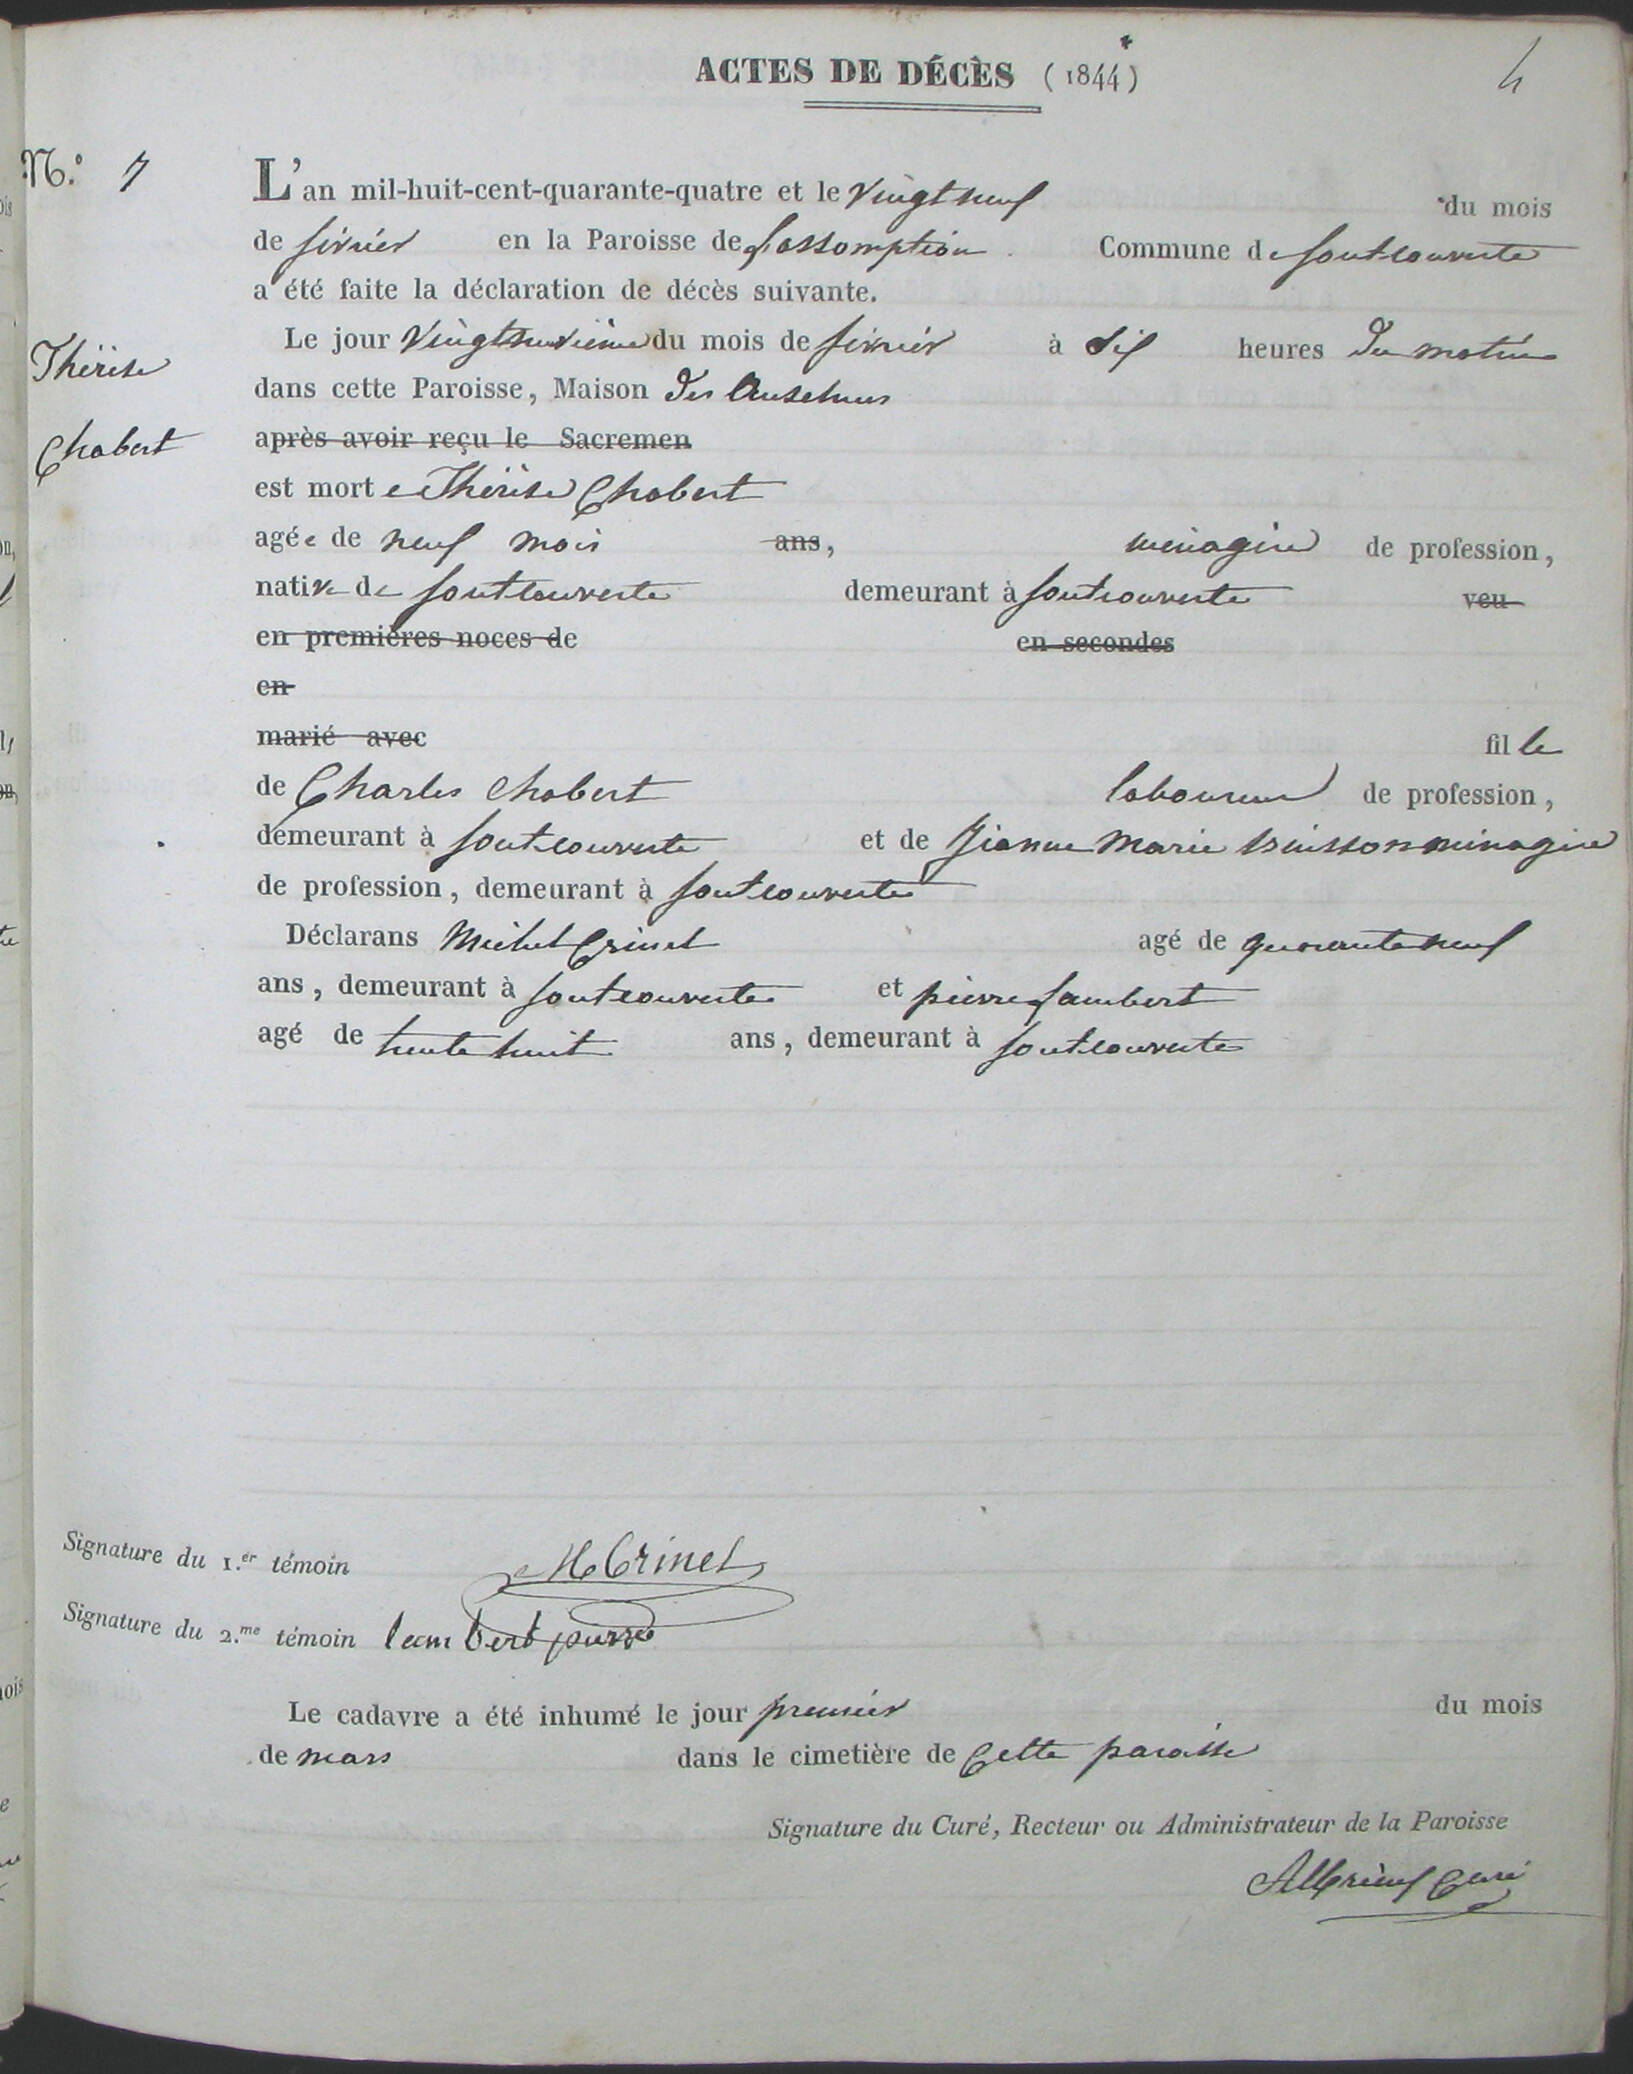 ACTES DE DÉCÈS (1844)
4
N.o 7
L'an mil-huit-cent-quarante-quatre et le vingt neuf du mois
de février en la Paroisse de L'assomption Commune de fontcouverte
a été faite la déclaration de décès suivante.
Le jour vingt neuvième du mois de février à dix heures du matin
Thérèse
dans cette Paroisse, Maison des Anselmes
Chabert
après avoir reçu le Sacremen
est morte Thérèse Chabert
agée de neuf mois ans, ménagère de profession,
native de fontcouverte demeurant à fontcouverte veu
en premières noces de en secondes
en
marié avec fille
de Charles Chabert laboureur de profession,
demeurant à fontcouverte et de Jeanne Marie buisson ménagère
de profession, demeurant à fontcouverte
Déclarans Michel Crinel agé de quarante neuf
ans, demeurant à fontcouverte et pierre Lambert
agé de trente huit ans, demeurant à fontcouverte
Signature du 1.er témoin M Crinel
Signature du 2.me témoin lambert pierre
Le cadavre a été inhumé le jour premier du mois
de mars dans le cimetière de Cette paroisse
Signature du Curé, Recteur ou Administrateur de la Paroisse
Curé